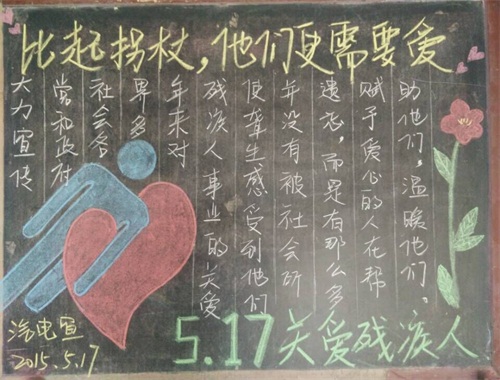 比起拐杖,他们更需要爱
大力宣传
党和政府
社会各
界多
年来对
残疾人事业的关爱
使聋生感受到他们
年没有被社会所
遗忘,而是有那么多
赋予爱心的人在帮
助他们,温暖他们;
5.17关爱残疾人
汽电宣
2015.5.17